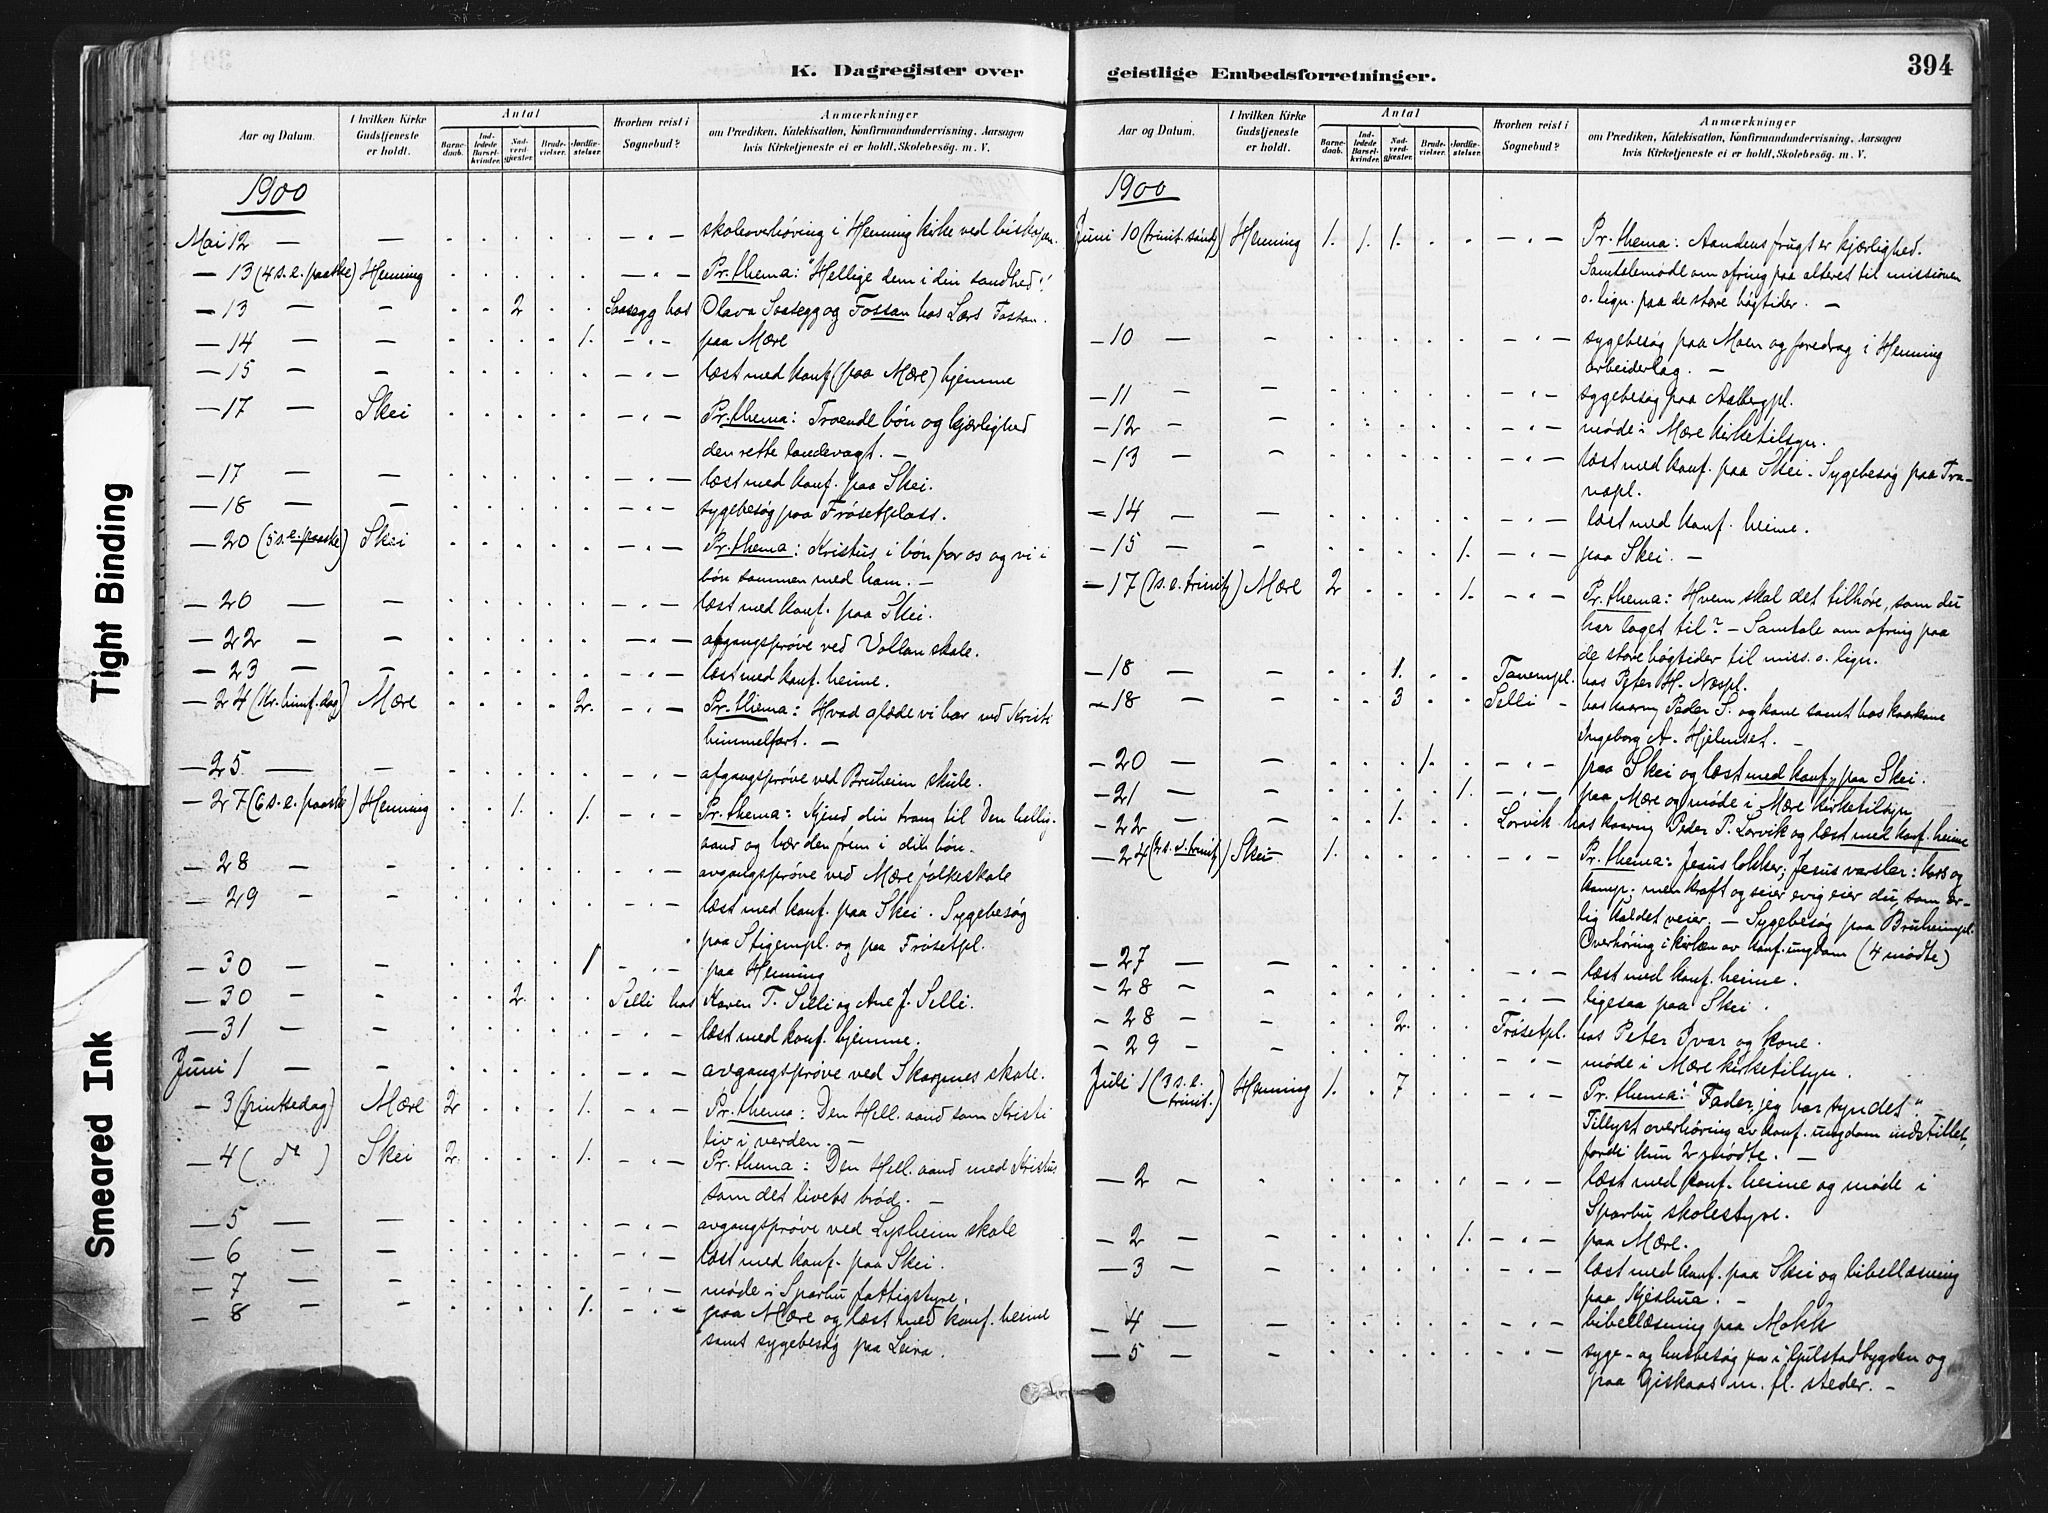 394
K. Dagregister over geistlige Embedsforretninger.
Aar og Datum.
I hvilken Kirke Gudstjeneste er holdt.
Antal
Barnedaab.
Indledede Barselkvinder.
Nadverdgjæster.
Brudevielser.
Jordfæstelser.
Hvorhen reist i Sognebud?
Anmærkninger
om Prædiken, Katekisation, Konfirmandundervisning, Aarsagen
hvis Kirketjeneste ei er holdt, Skolebesøg. m. V.
1900
Mai 12 — — — " — skoleoverhøring i Henning kirke ved biskopen.
— 13 (4 s. e. paaske) Henning — " — Pr. thema: "Hellige dem i din sandhed"!
— 13 — — 2 Saasegg hos Olava Saasegg og Fossan hos Lars Fossan.
— 14 — — 1. — " — paa Mære
— 15 — — — " — læst med konf. (paa Mære) hjemme
— 17 — Skei — " — Pr. thema: Troende bøn og kjærlighed
den rette landevagt. —
— 17 — — — " — læst med konf. paa Skei.
— 18 — — — " — sygebesøg paa Frøsetplass.
— 20 (5 s. e. paaske) Skei — " — Pr. thema: Kristus i bøn for os og vi i
bøn sammen med ham. —
— 20 — — — " — læst med konf. paa Skei.
— 22 — — — " — afgangsprøve ved Vollan skole.
— 23 — — læst med konf. heime.
— 24 (Kr. himf. dag) Mære 2. — " — Pr. thema: Hvad glæde vi har ved Kristi
himmelfart. —
— 25 — — — " — afgangsprøve ved Bruheim skule.
— 27 (6 s. e. paaske) Henning 1. 1. — " — Pr. thema: Kjend din trang til Den hellig-
aand og bær den frem i dit bøn.
— 28 — — — " — avgangsprøve ved Mære folkeskole
— 29 — — læst med konf. paa Skei. Sygebesøg
paa Stigempl. og paa Frøsetpl.
— 30 — — 1 — " — paa Henning
— 30 — — 2. Selli hos Karen T. Selli og Ane J. Selli.
— 31 — — — " — læst med konf. hjemme.
Juni 1 — — — " — avgangsprøve ved Skarpnes skole.
— 3 (pintsedag) Mære 2 1. — " — Pr. thema: Den Hell. aand som Kristi
liv i verden. —
— 4 (do) Skei 2. 1. — " — Pr. thema: Den Hell. aand med Kristus
som det livets brød. —
— 5 — — — " — avgangsprøve ved Lysheim skole
— 6 — — — " — læst med konf. paa Skei.
— 7 — — — " — møde i Sparbu fattigstyre.
— 8 — — 1. — " — paa Mære og læst med konf. heime
samt sygebesøg paa Leira.
Aar og Datum.
I hvilken Kirke Gudstjeneste er holdt.
Antal
Barnedaab.
Indledede Barselkvinder.
Nadverdgjæster.
Brudevielser.
Jordfæstelser.
Hvorhen reist i Sognebud?
Anmærkninger
om Prædiken, Katekisation, Konfirmandundervisning, Aarsagen
hvis Kirketjeneste ei er holdt, Skolebesøg. m. V.
1900
Juni 10 (trinit. sønd.) Henning 1. 1. 1. — " — Pr. thema: Aandens frugt er kjærlighed.
Samtalemøde om ofring paa alteret til missionen
o. lign. paa de store høgtider. —
— 10 — — — " — sygebesøg paa Moen og foredrag i Henning
arbeiderlag. —
— 11 — — — " — sygebesøg paa Aalbergpl.
— 12 — — — " — møde i Mære kirketilsyn.
— 13 — — — " — læst med konf. paa Skei. Sygebesøg paa Tra-
napl.
— 14 — — — " — læst med konf. heime.
— 15 — — 1. — " — paa Skei. —
— 17 (1 s. e. trinit.) Mære 2 1. — " — Pr. thema: Hvem skal det tilhøre, som du
har laget til? — Samtale om ofring paa
de store høgtider til miss. o. lign.
— 18 — — 1. Tanempl. hos Peter H. Næspl.
— 18 — — 3 Selli — hos kaarm. Peder S. og kone samt hos kaarkone
Ingeborg A. Hjelmset. —
— 20 — — 1. — " — paa Skei og læst med konf. paa Skei.
— 21 — — 1. — " — paa Mære og møde i Mære kirketilsyn
— 22 — — 1. Lorvik hos kaarm. Peder P. Lorvik og læst med konf. heime
— 24 (2 s. e. trinit.) Skei 1. — " — Pr. thema: Jesus lokker; Jesus varsler: kors og
kamp. men kraft og seier evig eier du, som ær-
lig kaldet veier. — Sygebesøg paa Bruheimpl.
Overhøring i kirken av konf. ungdom (4 mødte)
— 27 — — — " — læst med konf. heime.
— 28 — — — " — ligesaa paa Skei.
— 28 — — 2. Frøsetpl. hos Peter Ivar og kone.
— 29 — — — " — møde i Mære kirketilsyn.
Juli 1 (3 s. e. trinit.) Henning 1. 7 — " — Pr. thema: "Fader, jeg har syndet".
Tillyst overhøring av konf. ungdom indstillet,
fordi kun 2 mødte. —
— 2 — — " — læst med konf. heime og møde i
Sparbu skolestyre.
— 2 — — 1. — " — paa Mære.
— 3 — — — " — læst med konf. paa Skei og bibellæsning
paa
— 4 — — — " — bibellæsning paa Mokk
— 5 — — — " — syge- og husbesøg paa i Gulstadbygden og
paa Giskaas m. fl. steder. —
Tight Binding
Smeared Ink